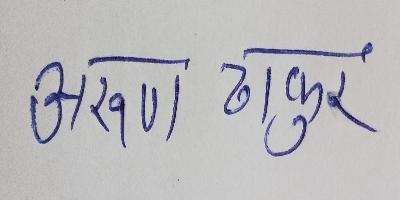 अरुण ठाकुर